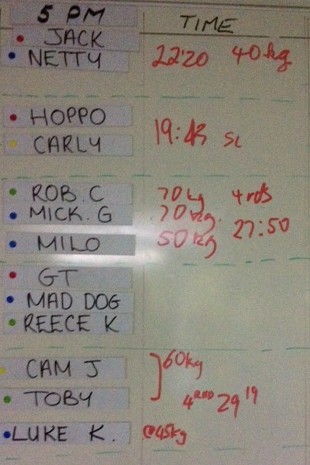 5 PM TIME
JACK
NETTY 22:20 40kg
HOPPO
CARLY 19:43 SL
ROB. C 70kg 4rds
MICK. G 70kg.
MILO 50kg 27:50
GT
MAD DOG
REECE K
CAM J 60kg
TOBY 4 RND 29 19
LUKE K. @45kg